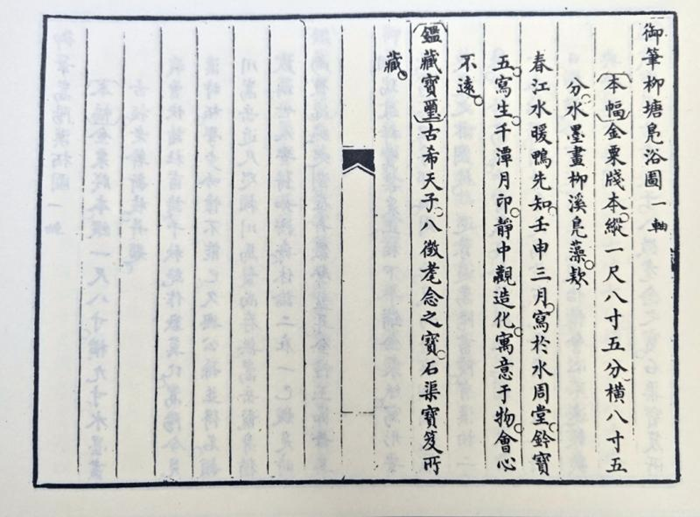 御筆柳塘鳧浴圖一軸
〔本幅〕金粟牋本。縱一尺八寸五分。橫八寸五
分。水墨畫柳溪鳧藻。款
春江水暖鴨先知。壬申三月。寫於水周堂。鈐寶
五。寫生。千潭月印。靜中觀造化。寓意于物。會心
不遠。
〔鑑藏寶璽〕古希天子。八徵耄念之寶。石渠寶笈所
藏。